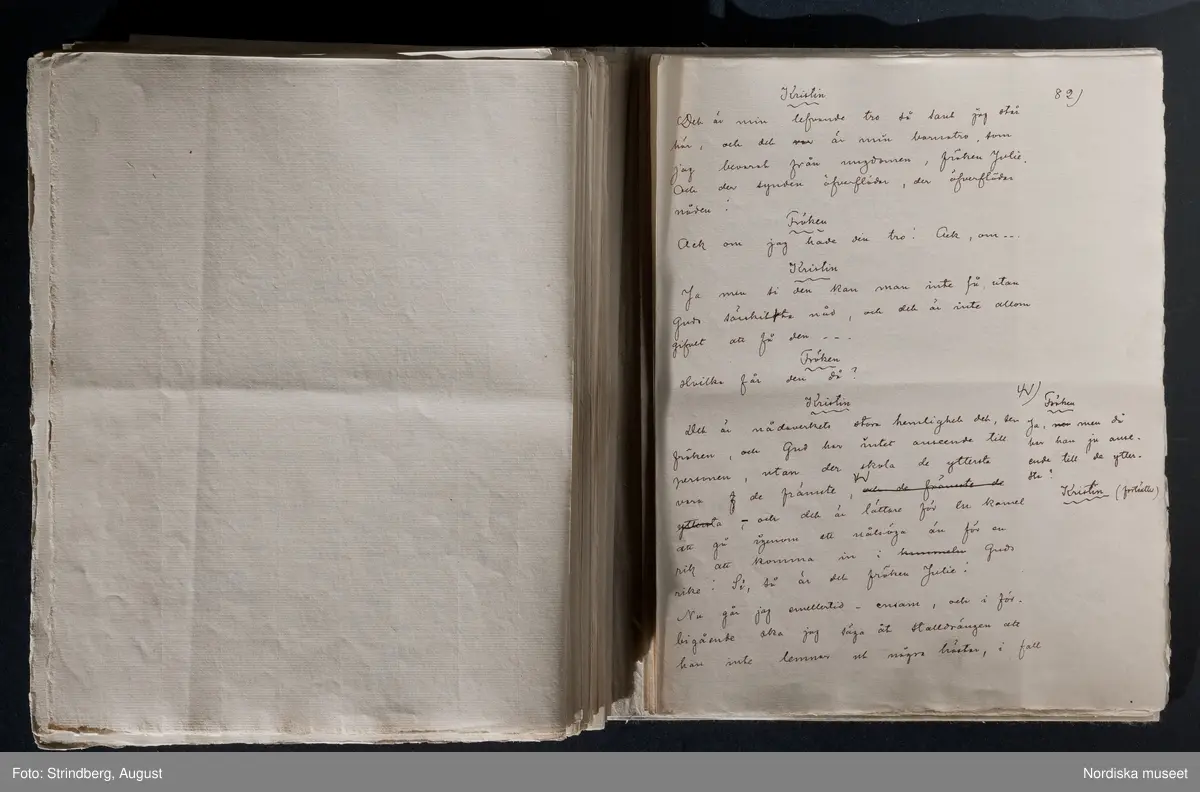 82)
Kristin
Det är min lefvande tro så sant jag står
här, och det var är min barnatro, som
jag bevarat från ungdomen, fröken Julie.
Och der synden öfverflödar, der öfverflödar
nåden!
Fröken
Ack om jag hade din tro! Ack, om ---
Kristin
Ja men si den kan man inte få utan
Guds särskilta nåd, och det är inte allom
gifvet att få den ---
Fröken
Hvilka får den då?
Kristin
Det är nådaverkets stora hemlighet det, ser
fröken, och Gud har intet anseende till
personen, utan der skola de yttersta
vara de främste, och de främste de
yttersta – och det är lättare för en kamel
att gå igenom ett nålsöga än för en
rik att komma in i himmeln Guds
rike! Si, så är det fröken Julie!
Nu går jag emellertid – ensam, och i för-
bigående ska jag säga åt stalldrängen att
han inte lemnar ut några hästar, i fall
Fröken
Ja, men då
har han ju anse-
ende till de ytter-
sta!
Kristin (fortsätter)
Foto: Strindberg, August
Nordiska museet